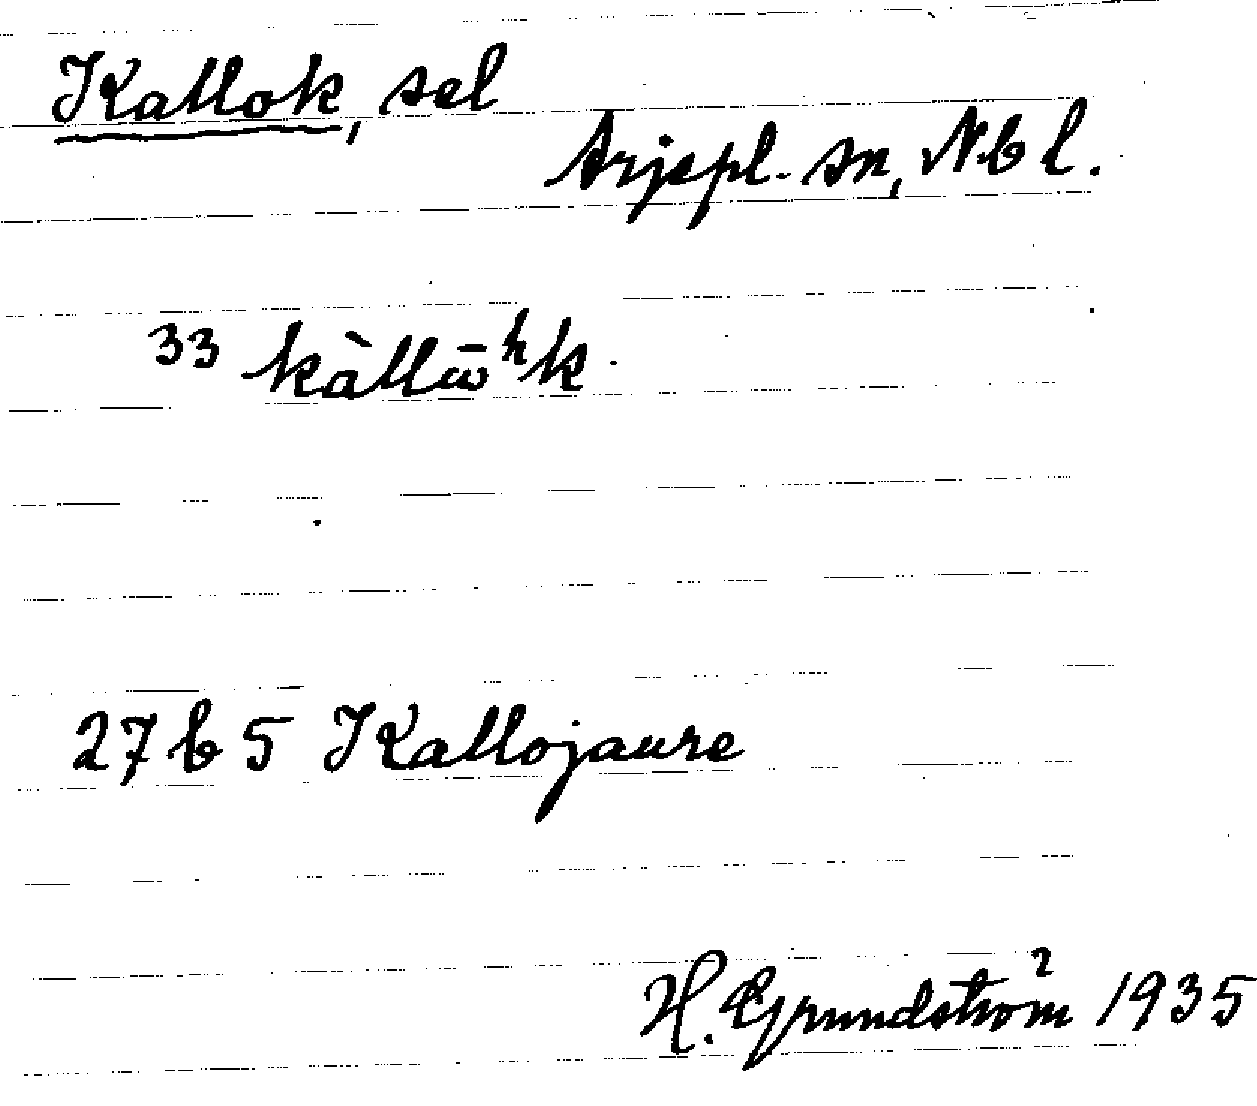 Kallok, sel
Arjepl. sn, Nbl.
33 kàllω̄ʰk.
27 b 5 Kallojaure
H. Grundström 1935